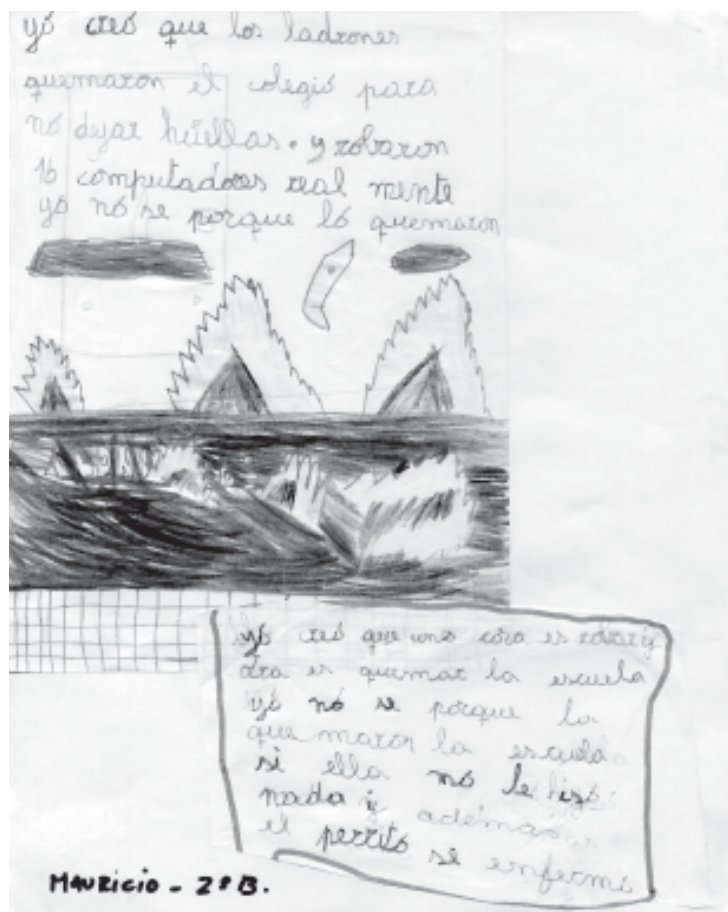 yó creó que los ladrones
quemaron el colegió para
nó dejar húellas. y robaron
16 computadores real mente
yó nó se porque ló quemaron
yó creó que una cósa es robar y
ótra es quemar la escuela
yó nó se porque la
que marón la escuela
si ella nó le hizó
nada y además
el perritó se enfermó
Mauricio - 2º B.